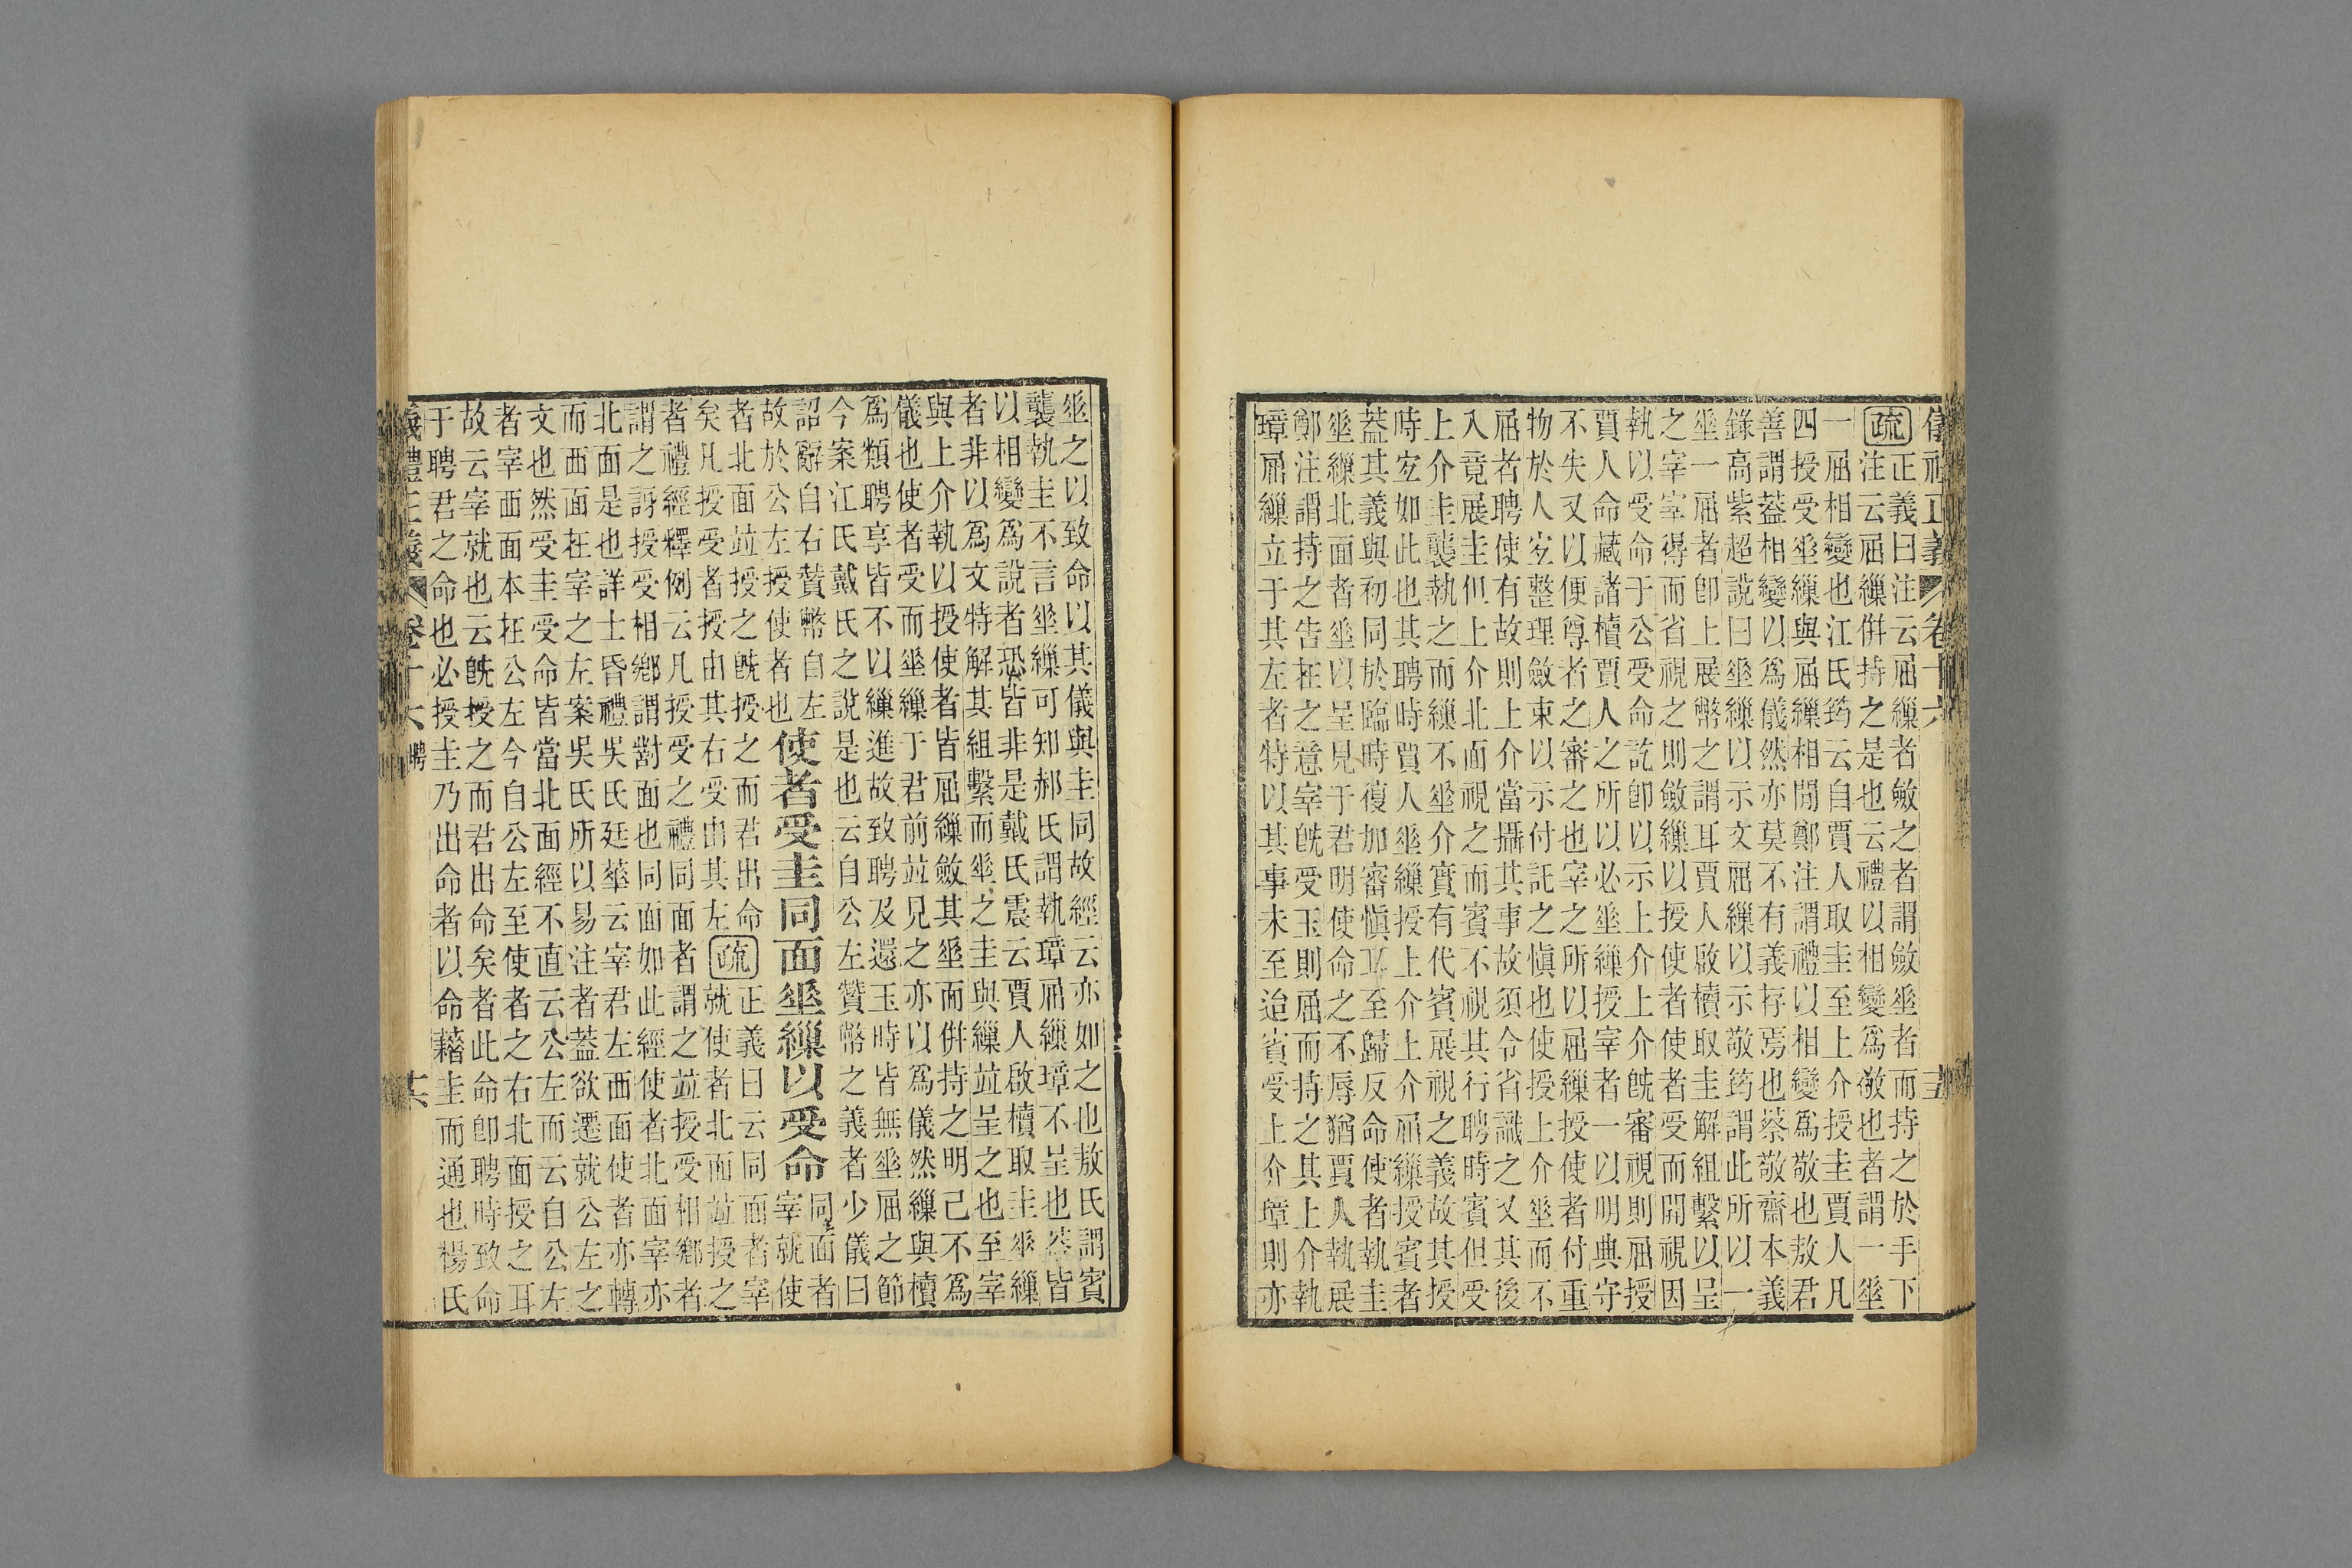 儀禮正義 卷十六
疏正義曰注云屈繅者斂之者謂斂垂者而持之於手下
注云屈繅併持之是也云禮以相變爲敬也者謂一垂
一屈相變也江氏筠云自賈人取圭至上介授圭賈人凡
四授受垂繅與屈繅相閒鄭注謂禮以相變爲敬也敖君
善謂蓋相變以爲儀然亦莫不有義存焉也蔡敬齋本義
錄高紫超說曰垂繅以示文屈繅以示敬筠謂此所以一
垂一屈者卽上展幣之謂耳賈人啟櫝取圭解組繫以呈
之宰宰得而省視之則斂繅以授使者使者受而開視因
執以受命于公受命訖卽以示上介上介旣審視則屈授
賈人命藏諸櫝賈人之所以必垂繅授宰者一以明典守
不失又以便尊者之審之也宰之所以屈繅授使者付重
物於人宐整理斂束以示付託之愼也使授上介垂而不
屈者聘使有故則上介當攝其事故須令省識之又其後
入竟展圭但上介北面視之而賓不視其行聘時賓但受
上介圭襲執之而繅不垂介賓有代賓展視之義故其授
時宐如此也其聘時賈人垂繅授上介上介屈繅授賓者
蓋其義與初同於臨時復加審愼耳至歸反命使者執圭
垂繅北面者垂以呈見于君明使命之不辱猶賈人執展
鄭注謂持之告在之意宰旣受玉則屈而持之其上介執
璋屈繅立于其左者特以其事未至迨賓受上介璋則亦
垂之以致命以其儀與圭同故經云亦如之也敖氏謂賓
襲執圭不言垂繅可知郝氏謂執璋屈繅璋不呈也蓋皆
以相變爲說者恐皆非是戴氏震云賈人啟櫝取圭垂繅
者非以爲文特解其組繫而垂之圭與繅竝呈之也至宰
與上介執以授使者皆屈繅斂其垂而併持之明己不爲
儀也使者受而垂繅于君前竝見之亦以爲儀然繅與櫝
爲類聘享皆不以繅進故致聘及還玉時皆無垂屈之節
今案江氏戴氏之說是也云自公左贊幣之義者少儀曰
詔辭自右贊幣自左
故於公左授使者也
使者受圭同面垂繅以受命
同面者
宰就使
者北面竝授之旣授之而君出命
矣凡授受者授由其右受由其左
疏正義曰云同面者宰
就使者北面竝授之
者禮經釋例云凡授受之禮同面者謂之竝授受相鄉者
謂之訝授受相鄉謂對面也同面如此經使者北面宰亦
北面是也詳士昏禮吳氏廷華云宰君左西面使者亦轉
而西面在宰之左案吳氏所以易注者蓋欲遷就公左之
文也然受圭受命皆當北面經不直云公左而云自公左
者宰西面本在公左今自公左至使者之右北面授之耳
故云宰就也云旣授之而君出命矣者此命卽聘時致命
于聘君之命也必授圭乃出命者以命藉圭而通也楊氏
儀禮正義 卷十六 聘